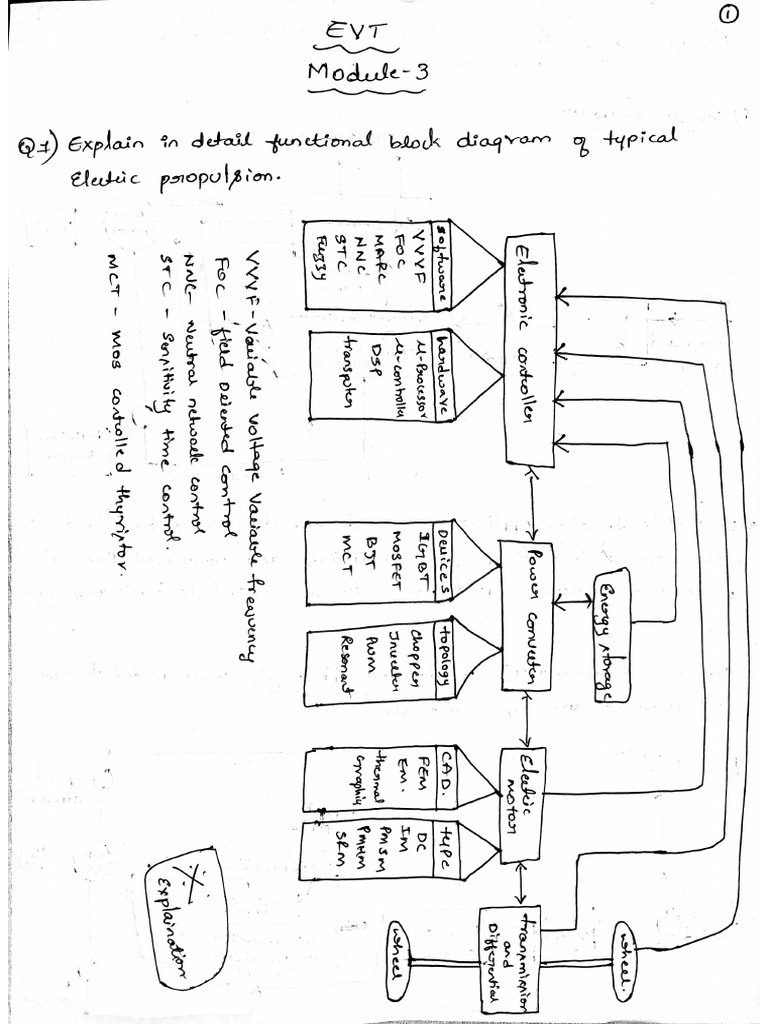 1
EVT
Module-3
Q1) Explain in detail functional block diagram of typical
Electric propulsion.
Electronic controller
Software
VVVF
FOC
MARC
NNC
STC
Fuzzy
hardware
μ-Processor
μ-controller
DSP
transputer
Power converter
Energy storage
Devices
IGBT
MOSFET
BJT
MCT
topology
Chopper
Inverter
PWM
Resonant
Electric
motor
CAD.
FEM
EM.
thermal
Graphics
type
DC
IM
PMSM
PMHM
SRM.
transmission
and
Differential
wheel.
wheel
VVVF - Variable Voltage Variable frequency
FOC - field oriented control
NNC - Neutral network control
STC - Sensitivity time control.
MCT - MOS controlled thyristor.
Explaination